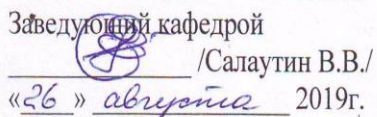 Заведующий кафедрой
/Салаутин В.В./
«26» августа 2019г.